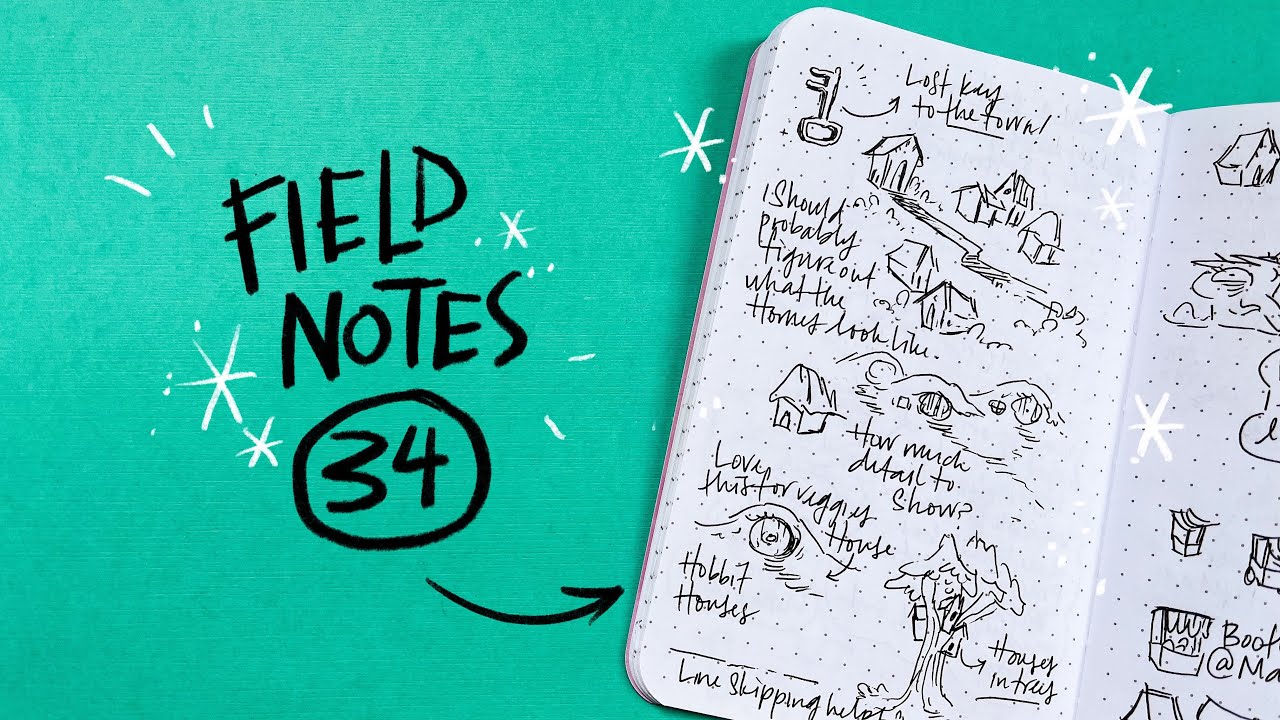 FIELD
NOTES
34
Lost key
to the town!
I Should
probably
figure out
what the
Homes look like.
How much
detail to
Show?
Love
this for veggies
House
Hobbit
Houses
Houses
in trees
Line Skipping helps
Boot
@Ma